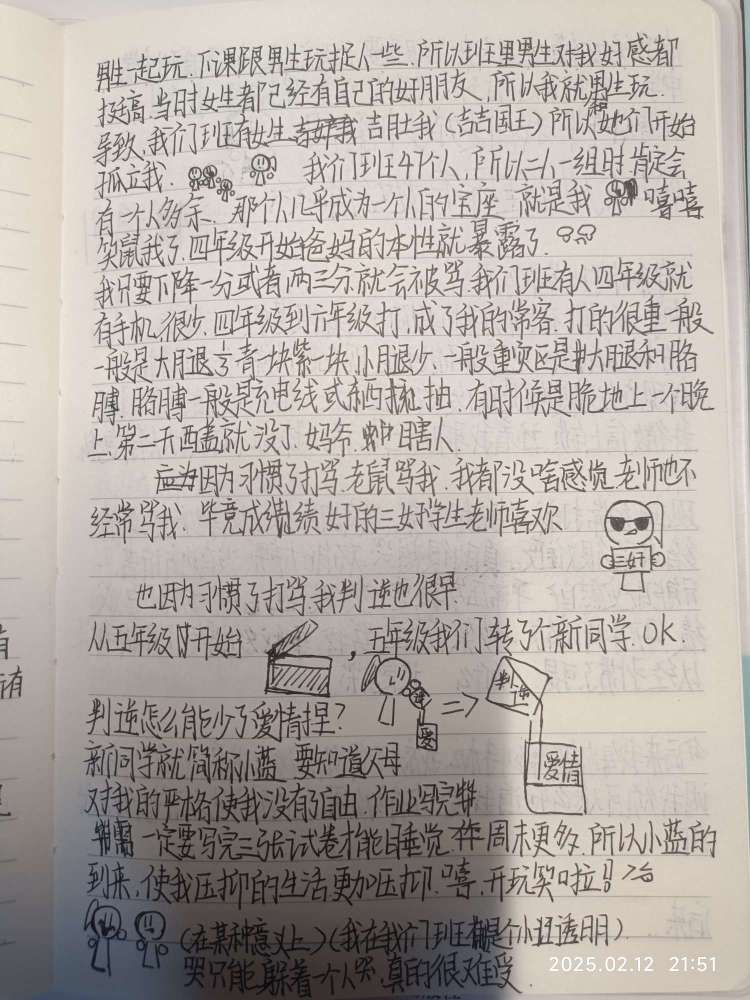 男生一起玩.下课跟男生玩捉人一些.所以班里男生对我好感都
挺高.当时女生都已经有自己的好朋友,所以我就和男生玩.
导致,我们班有女生 吉吐我(吉吉国王)所以她们开始
孤立我. 我们班47个人,所以二人一组时肯定会
有一个人多余. 那个人几乎成为一个人的宝座 就是我 嘻嘻
笑鼠我了.四年级开始爸妈的本性就暴露了.
我只要下降一分或者两三分就会被骂.我们班有人四年级就
有手机,很少.四年级到六年级打,成了我的常客.打的很重一般
一般是大腿 青一块紫一块.小腿少.一般重灾区是大腿和胳
膊.胳膊一般是充电线或东西抽.有时候是跪地上一个晚
上.第二天西盖就没了.妈爷. 害人.
因为习惯了打骂.老鼠骂我.我都没啥感觉.老师也不
经常骂我.毕竟成绩好的三好学生老师喜欢
三好
也因为习惯了打骂.我判逆也很早.
从五年级开始 ,五年级我们转了个新同学.OK.
判逆
爱
判逆怎么能少了爱情捏?
爱情
新同学就简称小蓝 要知道父母
对我的严格使我没有了自由.作业写完
需一定要写完三张试卷才能睡觉.在周末更多.所以小蓝的
到来,使我压抑的生活更加压抑.嘻.开玩笑啦!
(在某种意义上)(我在我们班是个小透明)
哭只能躲着一个人哭.真的很难受.
2025.02.12 21:51